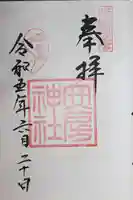 奉拝
安房神社
令和五年六月二十日